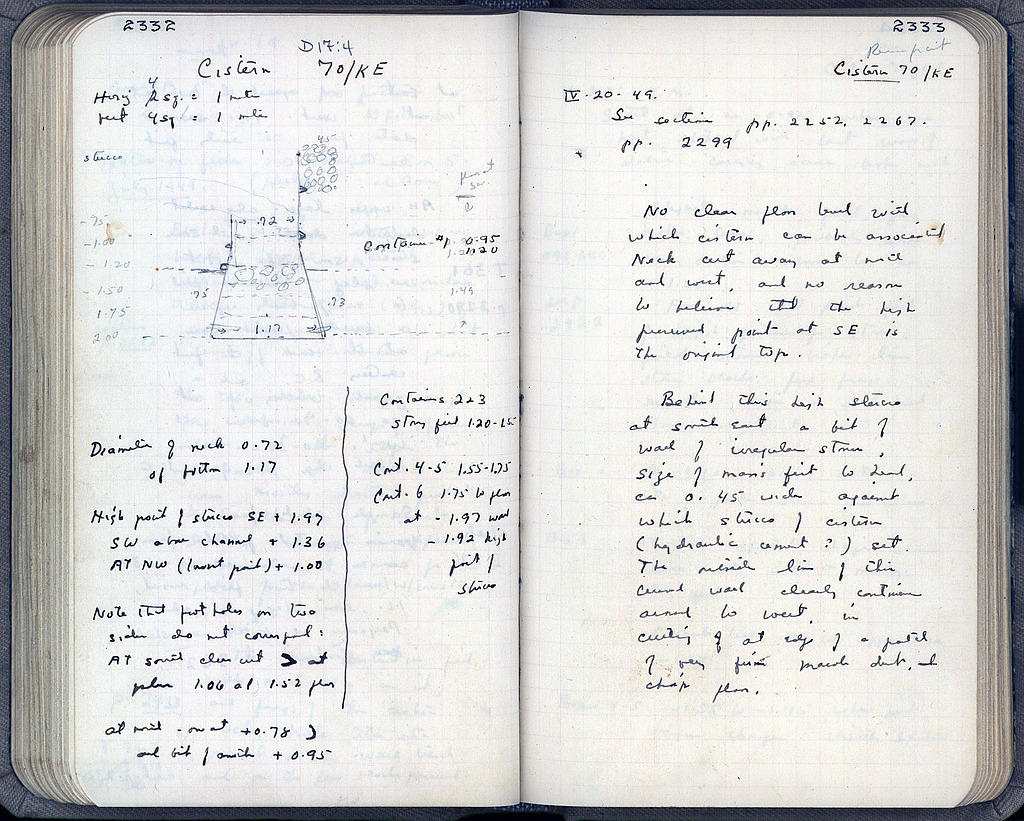 2332
D17:4
Cistern 70/KE
Horiz 2 sq. = 1 mtr
4
vert 4 sq = 1 mtr
stucco
.45
-.75
-1.00
-1.20
-1.50
1.75
2.00
.72
.75
.73
1.17
Container #1. 0.95
1.20
1.49
?
Diameter of neck 0.72
of bottom 1.17
High point of stucco SE + 1.97
SW above channel + 1.36
At NW (lowest point) + 1.00
Note that foot holes on two
sides do not correspond:
At south clear cut at
1.06 at 1.52
at north - on at +0.78
and bit of another + 0.95
Contains 2+3
stony fill 1.20-1.55
Cont. 4-5 1.55-1.75
Cont. 6 1.75 to floor
at - 1.97 west
- 1.92 high
point of
stucco
2333
Cistern 70/KE
IV-20-49.
See section pp. 2252, 2267.
pp. 2299
No clear floor level with
which cistern can be associated
Neck cut away at north
and west, and no reason
to believe that the high
preserved point at SE is
the original top.
Behind this high stucco
at south east a bit of
wall of irregular stones,
size of man's fist to head,
ca 0.45 wide against
which stucco of cistern
(hydraulic cement?) set.
The outside line of this
curved wall clearly continues
around to west, in
cutting of at edge of a patch
of very firm
chip floor.